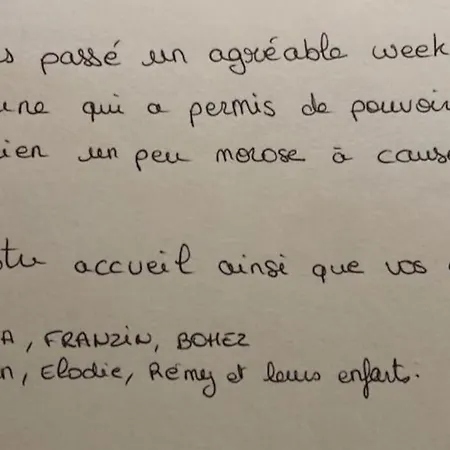 s passé un agréable week
une qui a permis de pouvoir
ien un peu morose à cause
tu accueil ainsi que vos
A, FRANZIN, BOHEZ
n, Elodie, Rémy et leurs enfants.